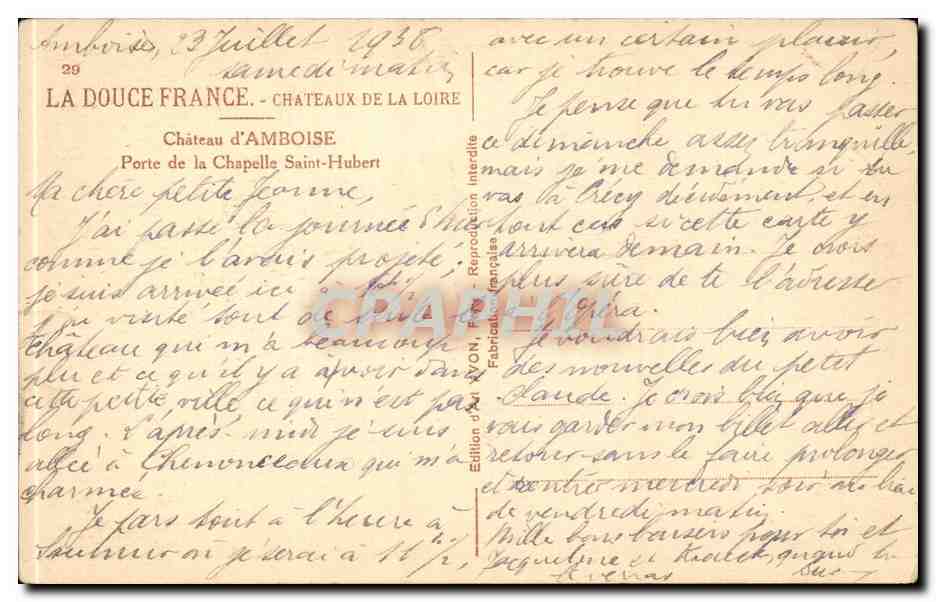 Amboise, 23 Juillet 1938
samedi matin
29
LA DOUCE FRANCE. - CHATEAUX DE LA LOIRE
Château d'AMBOISE
Porte de la Chapelle Saint-Hubert
Ma chère petite Jeanne,
J'ai passé la journée d'hier
comme je l'avais projeté;
je suis arrivée ici à
j'ai visité tout de suite le
château qui m'a beaucoup
plu et ce qu'il y a à voir dans
cette petite ville, ce qui n'est pas
long. L'après-midi je suis
allée à Chenonceaux qui m'a
charmée.
Je pars tout à l'heure à
Saumur où je serai à 11 h,
Edition d'Art YVON, Reproduction interdite
Fabrication française
CPAPHIL
avec un certain plaisir,
car je trouve le temps long.
Je pense que tu vas passer
ce dimanche assez tranquille,
mais je me demande si tu
vas à Crécy décidément, et en
tout cas si cette carte y
arrivera demain. Je crois
plus sûre de te l'adresser
à l'Opéra.
Je voudrais bien avoir
des nouvelles du petit
Claude. Je crois bien que je
vais garder mon billet aller et
retour sans le faire prolonger
et rentrer mercredi soir au lieu
de vendredi matin.
Mille bons baisers pour toi et
Jacqueline et quand tu
le verras